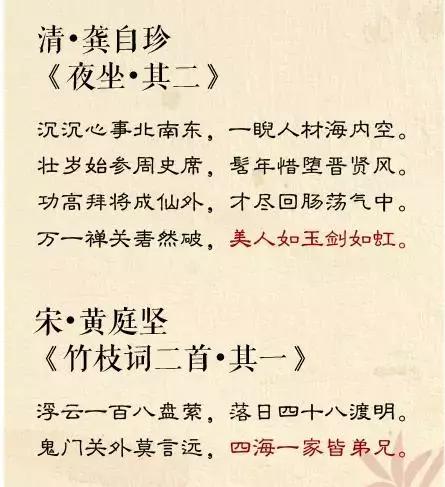 清·龚自珍
《夜坐·其二》
沉沉心事北南东，一睨人材海内空。
壮岁始参周史席，髫年惜堕晋贤风。
功高拜将成仙外，才尽回肠荡气中。
万一禅关砉然破，美人如玉剑如虹。
宋·黄庭坚
《竹枝词二首·其一》
浮云一百八盘萦，落日四十八渡明。
鬼门关外莫言远，四海一家皆弟兄。